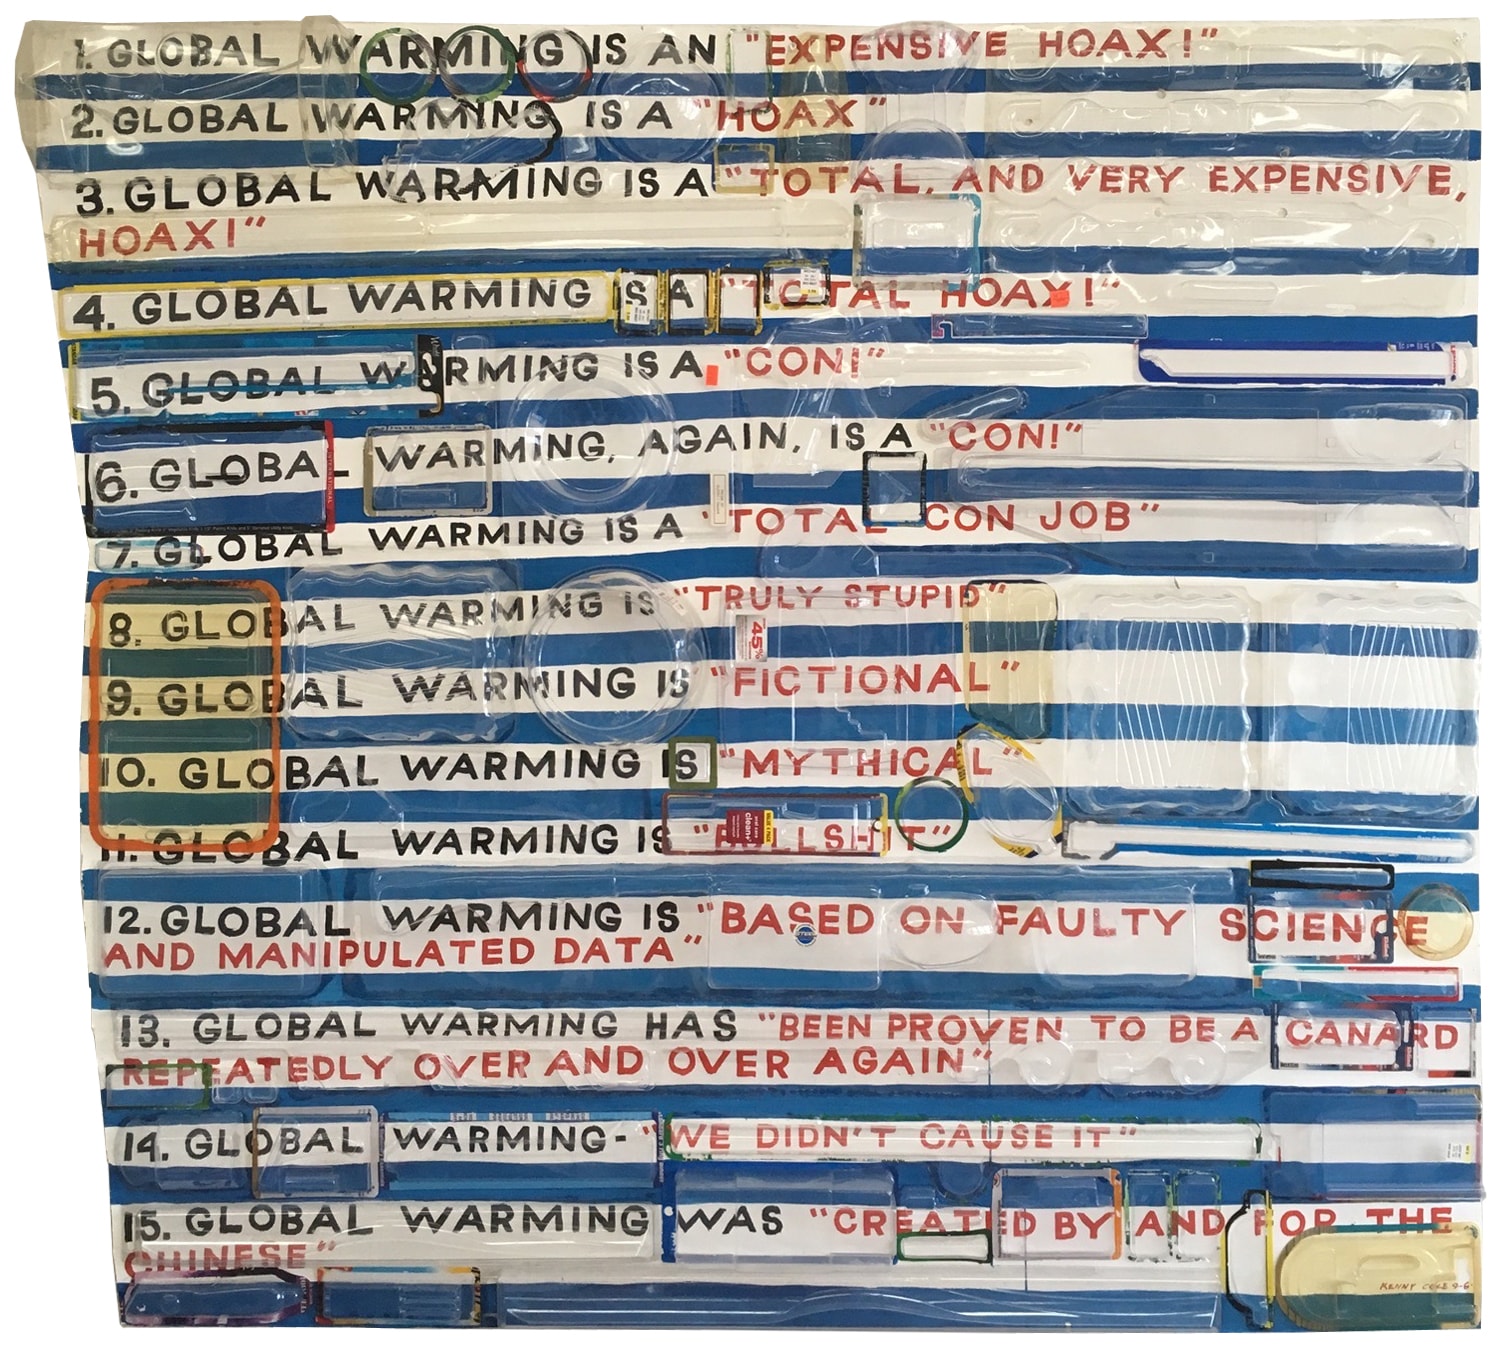 1. GLOBAL WARMING IS AN "EXPENSIVE HOAX!"
2. GLOBAL WARMING IS A "HOAX"
3. GLOBAL WARMING IS A "TOTAL, AND VERY EXPENSIVE,
HOAX!"
4. GLOBAL WARMING IS A "TOTAL HOAX!"
5. GLOBAL WARMING IS A "CON!"
6. GLOBAL WARMING, AGAIN, IS A "CON!"
7. GLOBAL WARMING IS A "TOTAL CON JOB"
8. GLOBAL WARMING IS "TRULY STUPID"
45%
9. GLOBAL WARMING IS "FICTIONAL"
10. GLOBAL WARMING IS "MYTHICAL"
11. GLOBAL WARMING IS "BULLSHIT"
clean+
12. GLOBAL WARMING IS "BASED ON FAULTY SCIENCE
AND MANIPULATED DATA"
13. GLOBAL WARMING HAS "BEEN PROVEN TO BE A CANARD
REPEATEDLY OVER AND OVER AGAIN"
14. GLOBAL WARMING- "WE DIDN'T CAUSE IT"
15. GLOBAL WARMING WAS "CREATED BY AND FOR THE
CHINESE"
KENNY COLE